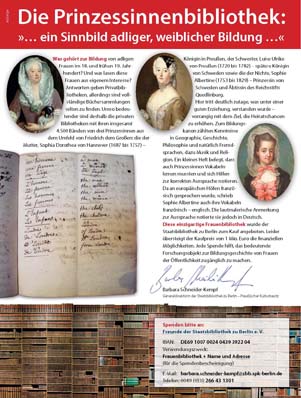 Die Prinzessinnenbibliothek:
»… ein Sinnbild adliger, weiblicher Bildung …«
Was gehört zur Bildung von adligen
Frauen im 18. und frühen 19. Jahr-
hundert? Und was lasen diese
Frauen zur eigenen Unterhaltung?
Antworten geben Privatbib-
liotheken, allerdings sind voll-
ständige Büchersammlungen
selten zu finden. Umso bedeu-
tender sind deshalb die privaten
Bibliotheken mit ihren insgesamt
4.500 Bänden von drei Prinzessinnen aus
dem Umfeld von Friedrich dem Großen: die der
Mutter, Sophia Dorothea von Hannover (1687 bis 1757) –
Königin in Preußen, der Schwester, Luise Ulrike
von Preußen (1720 bis 1782) – spätere Königin
von Schweden sowie die der Nichte, Sophia
Albertina (1753 bis 1829) – Prinzessin von
Schweden und Äbtissin des Reichsstifts
Quedlinburg.
Hier tritt deutlich zutage, was unter einer
guten Erziehung verstanden wurde –
vorrangig mit dem Ziel, die Heiratschancen
zu erhöhen. Zum Bildungs-
kanon zählten Kenntnisse
in Geographie, Geschichte,
Philosophie und natürlich Fremd-
sprachen, dazu Musik und Reli-
gion. Ein kleines Heft belegt, dass
auch Prinzessinnen Vokabeln
lernen mussten und sich Hilfen
zur korrekten Aussprache notierten.
Da an europäischen Höfen franzö-
sisch gesprochen wurde, schrieb
Sophie Albertine auch ihre Vokabeln
französisch – englisch. Die lautmalerische Anmerkung
zur Aussprache notierte sie jedoch in Deutsch.
Diese einzigartige Frauenbibliothek wurde der
Staatsbibliothek zu Berlin zum Kauf angeboten. Leider
übersteigt der Kaufpreis von 1 Mio. Euro die finanziellen
Möglichkeiten. Jede Spende hilft, das bedeutende
Forschungsobjekt zur Bildungsgeschichte von Frauen
der Öffentlichkeit zugänglich zu machen.
Barbara Schneider-Kempf
Generaldirektorin der Staatsbibliothek zu Berlin – Preußischer Kulturbesitz
Spenden bitte an:
Freunde der Staatsbibliothek zu Berlin e. V.
IBAN:
Verwendungszweck:
Frauenbibliothek + Name und Adresse
(für die Spendenbescheinigung)
E-Mail: barbara.schneider-kempf@sbb.spk-berlin.de
Telefon: 0049 (0)30 266 43 1301